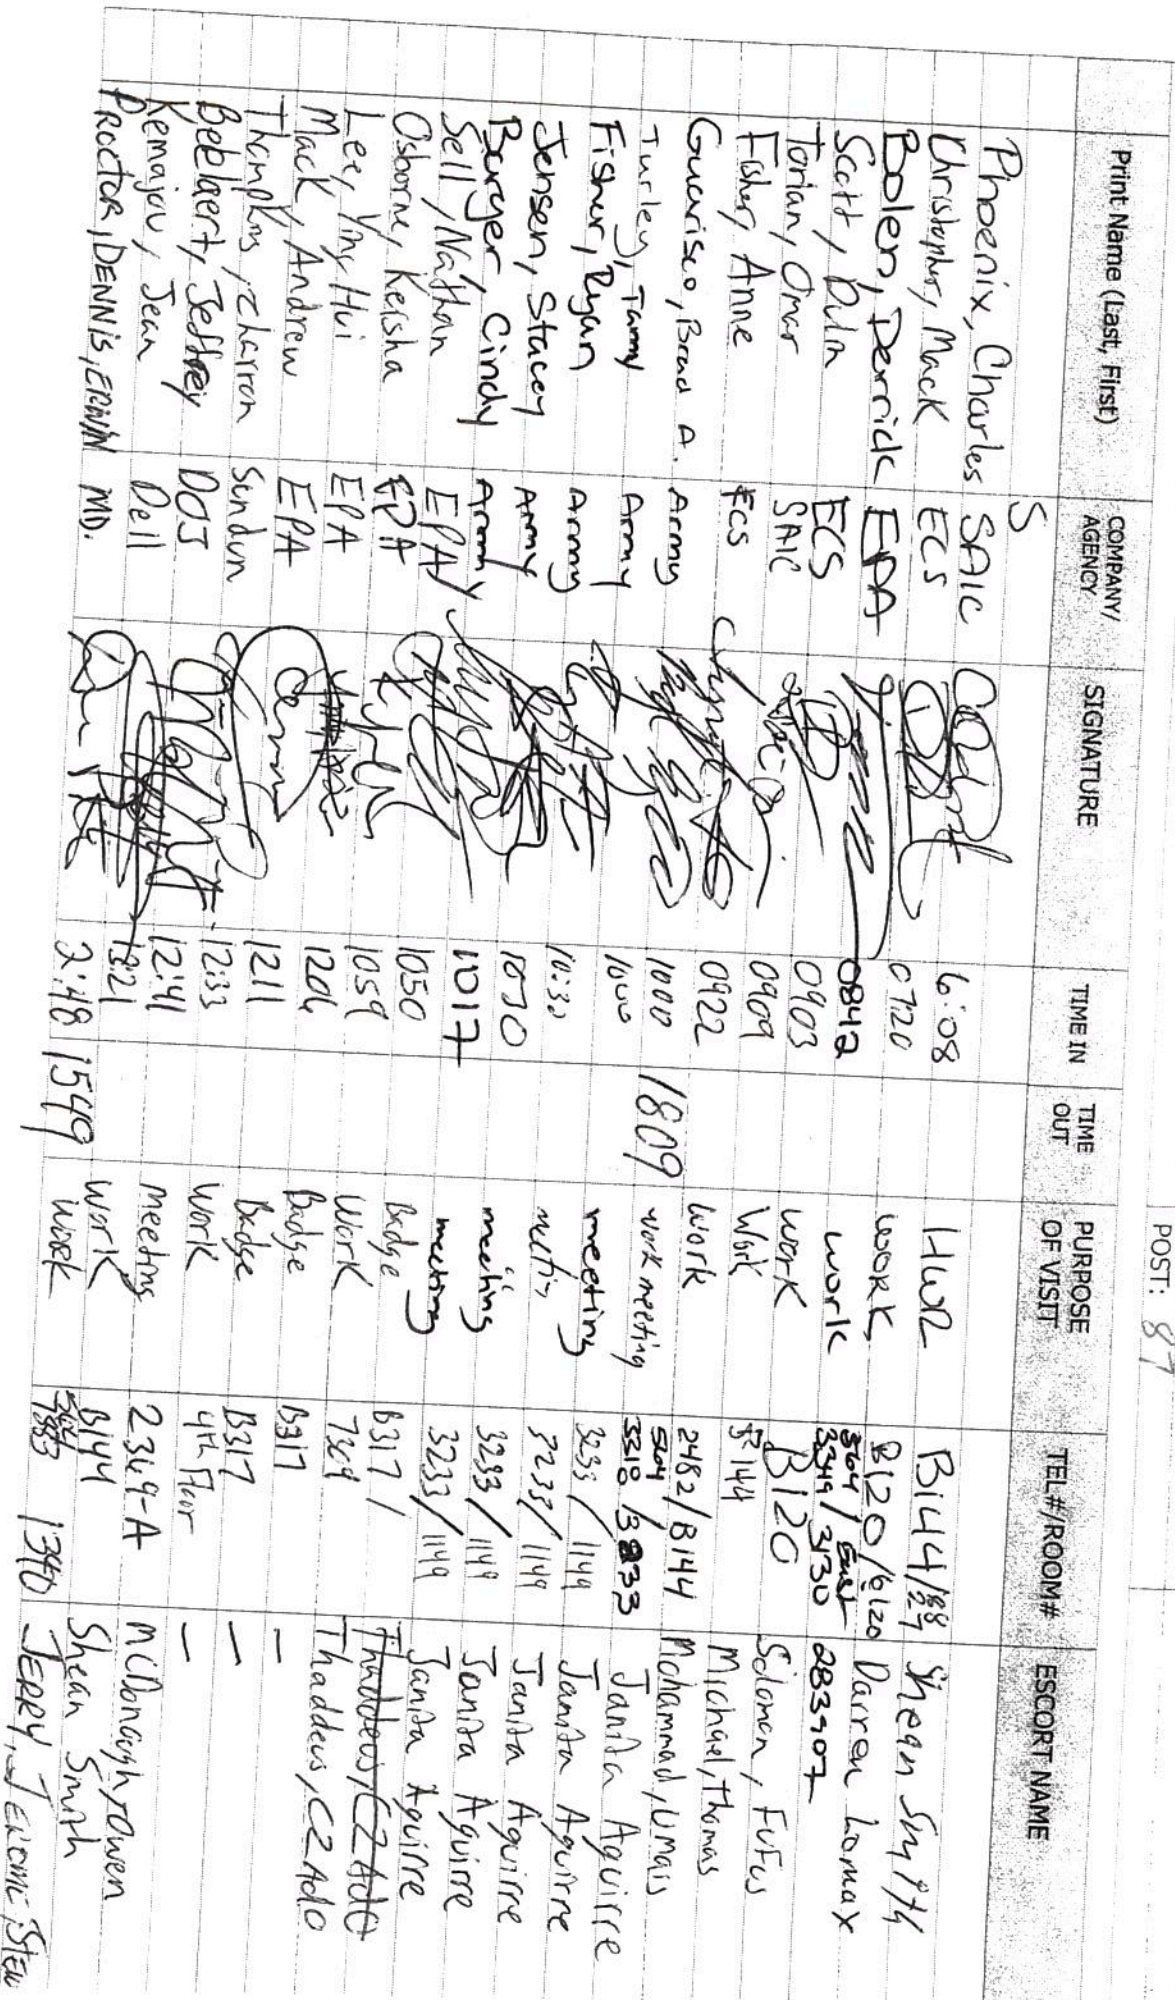 POST: 87
Print Name (Last, First) COMPANY/ AGENCY SIGNATURE TIME IN TIME OUT PURPOSE OF VISIT TEL#/ROOM# ESCORT NAME
S
Phoenix, Charles SAIC 6:08 HWR B144/ Shean Smith
Christopher, Mack ECS 0720 work B120/6120 Darren Lomax
Bolen, Derrick EPA 0842 work 564/ East 3349/3130 283907
Scott, ECS 0903 work B120 Solomon, Fufus
Torian, Omar SAIC 0909 Work B144 Michael, Thomas
Fisher, Anne ECS 0922 work 2482/B144 Mohammad, Umais
Gucurisco, Brad A. Army 1000 1809 work meeting 564 3318/3233 Janita Aguirre
Turley, Tammy Army 1000 meeting 3233/1149 Janita Aguirre
Fisher, Ryan Army 10:30 3233/1149 Janita Aguirre
Jensen, Stacey Army 1030 meeting 3233/1149 Janita Aguirre
Burger, Cindy Army 1017 meeting 3233/1149 Janita Aguirre
Sell, Nathan EPA 1050 Badge B317/ Thaddeus, C2 Ado
Osborne, Keisha EPA 1059 Work 7309 Thaddeus, C2 Ado
Lee, Ying Hui EPA 1206 Badge B317 —
Mack, Andrew EPA 1211 Badge B317 —
Thompkins, Sharron Sundun 12:33 work 4th Floor —
Beelaert, Jeffrey DOJ 12:41 meeting 2369-A McDonagh, Owen
Kemajou, Jean Dell 13:21 work B144 Shean Smith
PROCTOR, DENNIS, ERWIN MD. 2:48 1549 Work 564 7883 1340 JERRY, JEROME, STEW